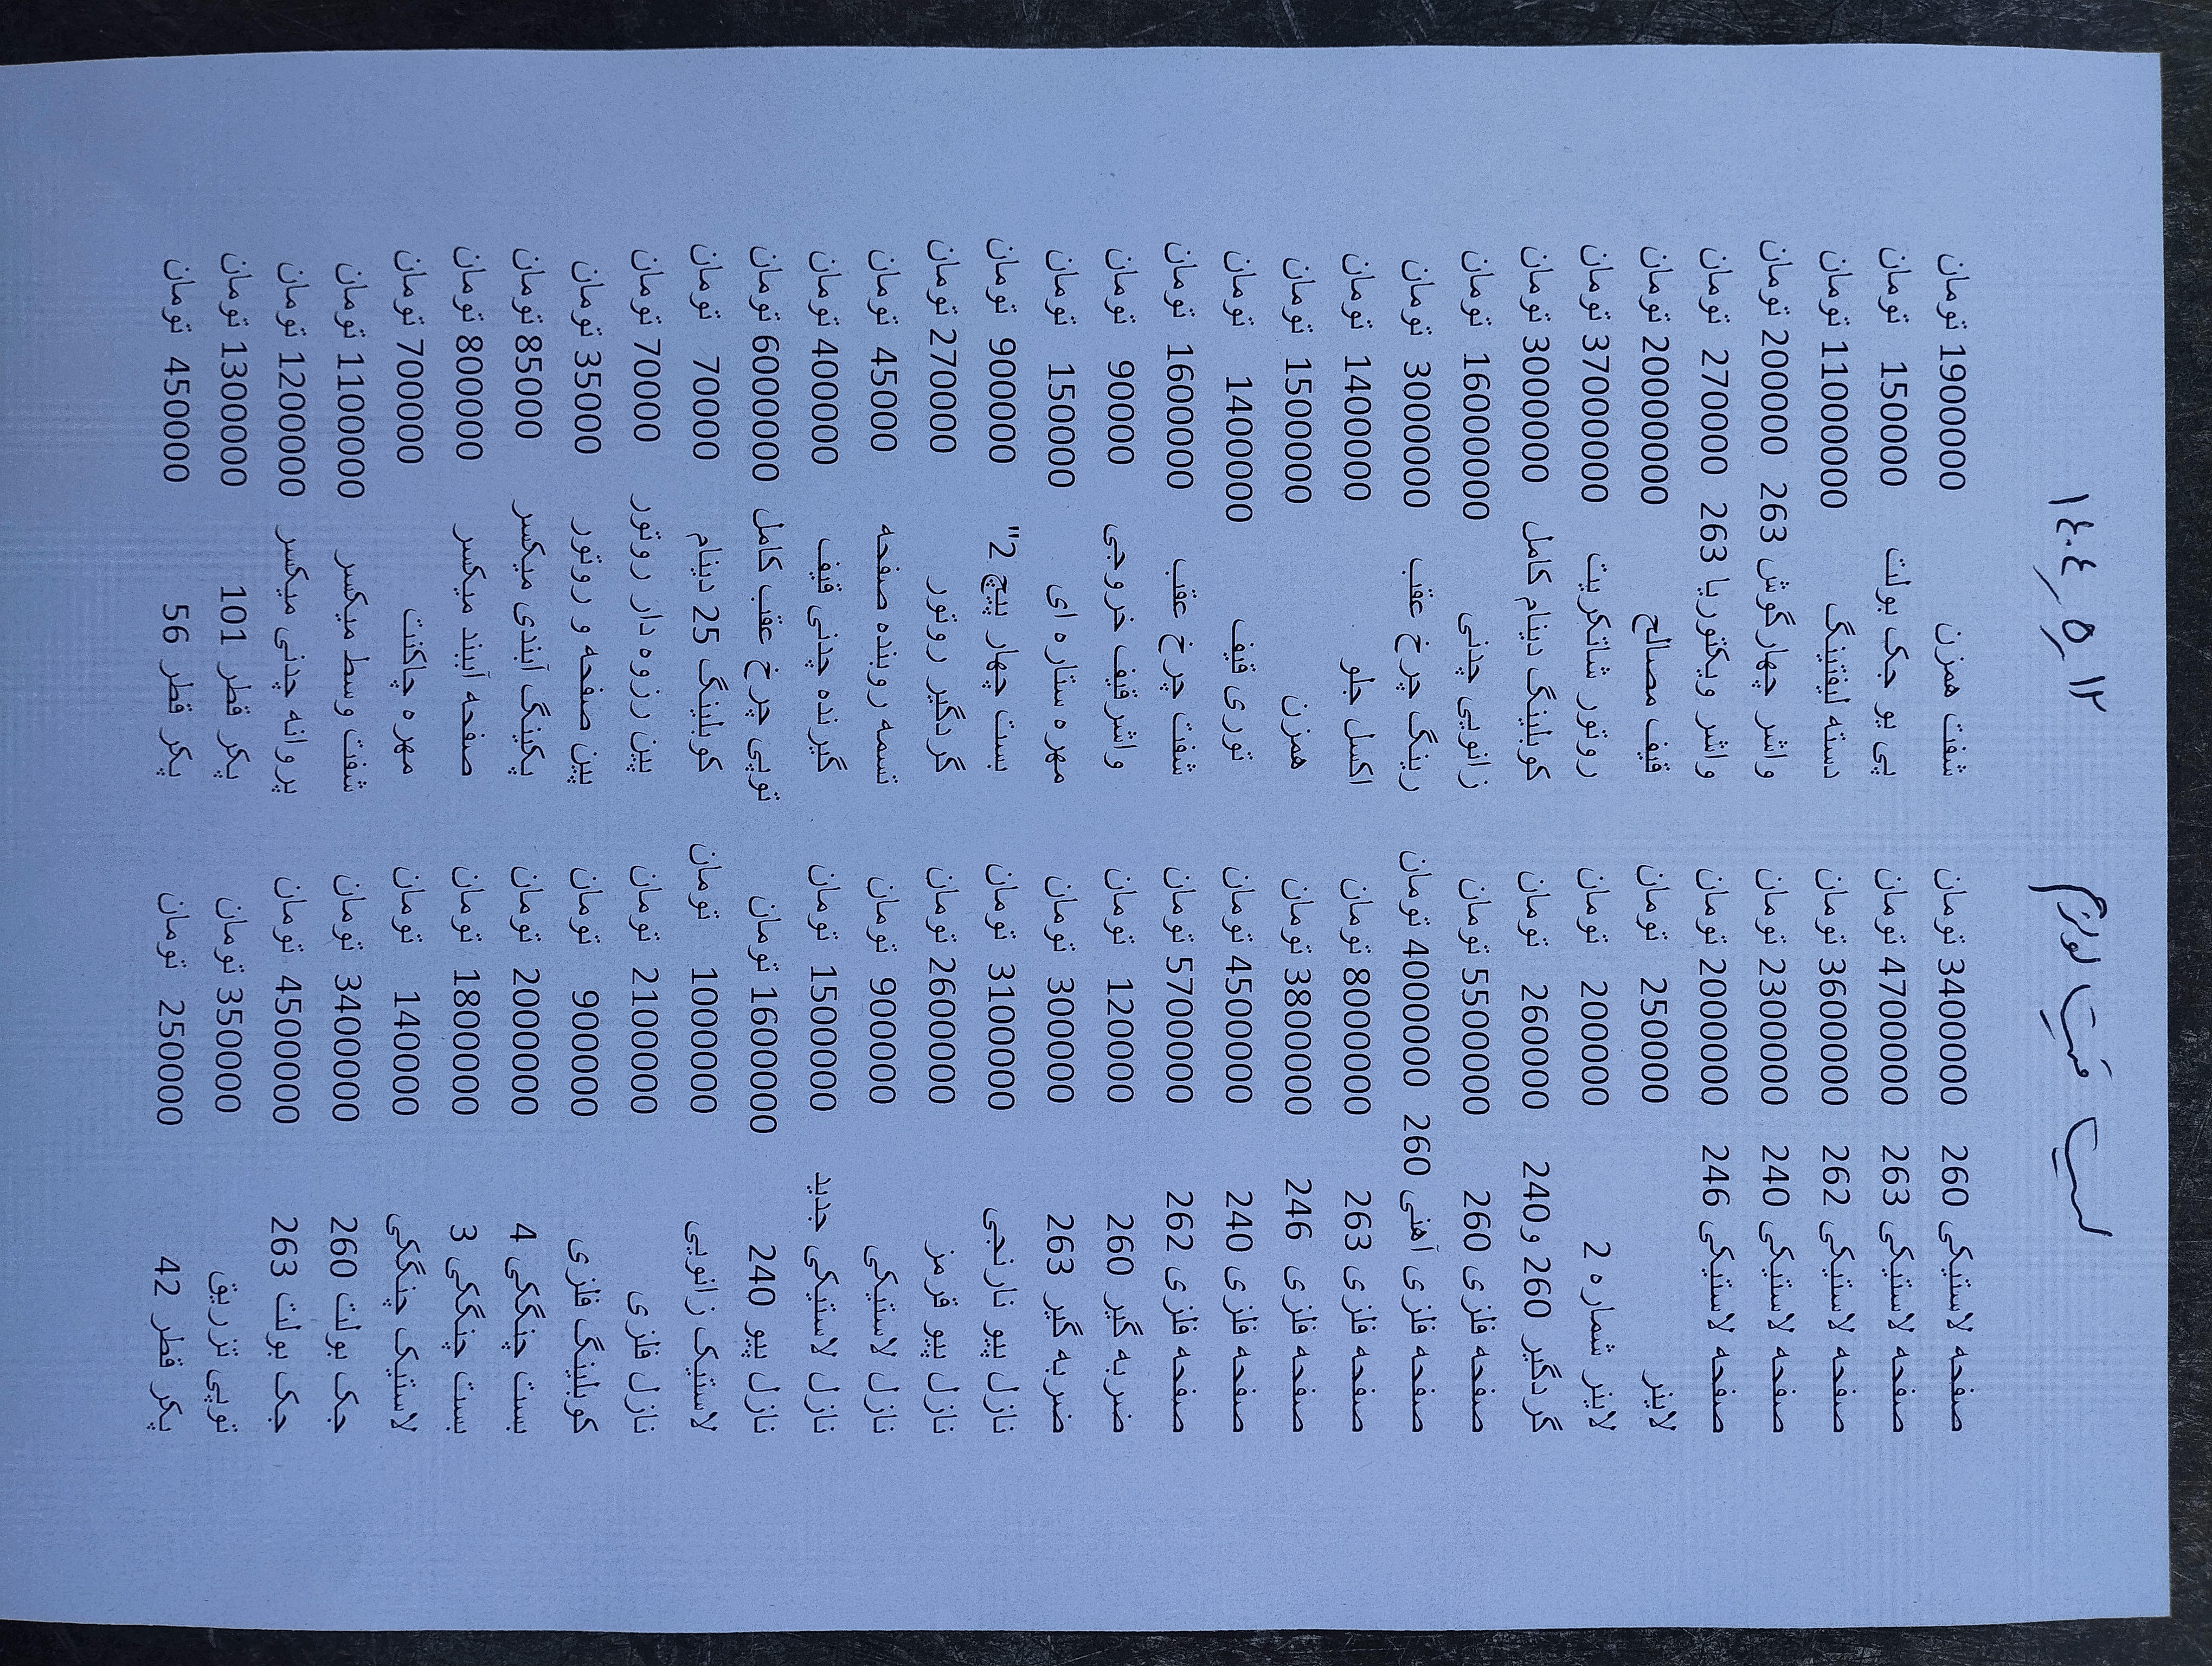 لیست قیمت لوازم ۱۴۰۴/۵/۱۲
صفحه لاستیکی 260 3400000 تومان شفت همزن 1900000 تومان
صفحه لاستیکی 263 4700000 تومان پی یو جک بولت 150000 تومان
صفحه لاستیکی 262 3600000 تومان دسته لیفتینگ 1100000 تومان
صفحه لاستیکی 240 2300000 تومان واشر چهارگوش 263 200000 تومان
صفحه لاستیکی 246 2000000 تومان واشر ویکتوریا 263 270000 تومان
لاینر 250000 تومان قیف مصالح 20000000 تومان
لاینر شماره 2 200000 تومان روتور شاتکریت 37000000 تومان
گردگیر 260 و 240 260000 تومان کوبلینگ دینام کامل 3000000 تومان
صفحه فلزی 260 5500000 تومان زانویی چدنی 16000000 تومان
صفحه فلزی آهنی 260 4000000 تومان رینگ چرخ عقب 3000000 تومان
صفحه فلزی 263 8000000 تومان اکسل جلو 1400000 تومان
صفحه فلزی 246 3800000 تومان همزن 1500000 تومان
صفحه فلزی 240 4500000 تومان توری قیف 1400000 تومان
صفحه فلزی 262 5700000 تومان شفت چرخ عقب 1600000 تومان
ضربه گیر 260 120000 تومان واشرقیف خروجی 90000 تومان
ضربه گیر 263 300000 تومان مهره ستاره ای 150000 تومان
نازل پیو نارنجی 3100000 تومان بست چهار پیچ 2" 900000 تومان
نازل پیو قرمز 2600000 تومان گردگیر روتور 270000 تومان
نازل لاستیکی 900000 تومان تسمه روبنده صفحه 45000 تومان
نازل لاستیکی جدید 1500000 تومان گیرنده چدنی قیف 400000 تومان
نازل پیو 240 1600000 تومان توپی چرخ عقب کامل 6000000 تومان
لاستیک زانویی 1000000 تومان کوبلینگ 25 دینام 70000 تومان
نازل فلزی 2100000 تومان پین رزوه دار روتور 70000 تومان
کوبلینگ فلزی 900000 تومان پین صفحه و روتور 35000 تومان
بست چنگکی 4 2000000 تومان پکینگ آبندی میکسر 85000 تومان
بست چنگکی 3 1800000 تومان صفحه آببند میکسر 800000 تومان
لاستیک چنگکی 140000 تومان مهره چاکنت 700000 تومان
جک بولت 260 3400000 تومان شفت وسط میکسر 1100000 تومان
جک بولت 263 4500000 تومان پروانه چدنی میکسر 1200000 تومان
توپی تزریق 350000 تومان پکر قطر 101 1300000 تومان
پکر قطر 42 250000 تومان پکر قطر 56 450000 تومان